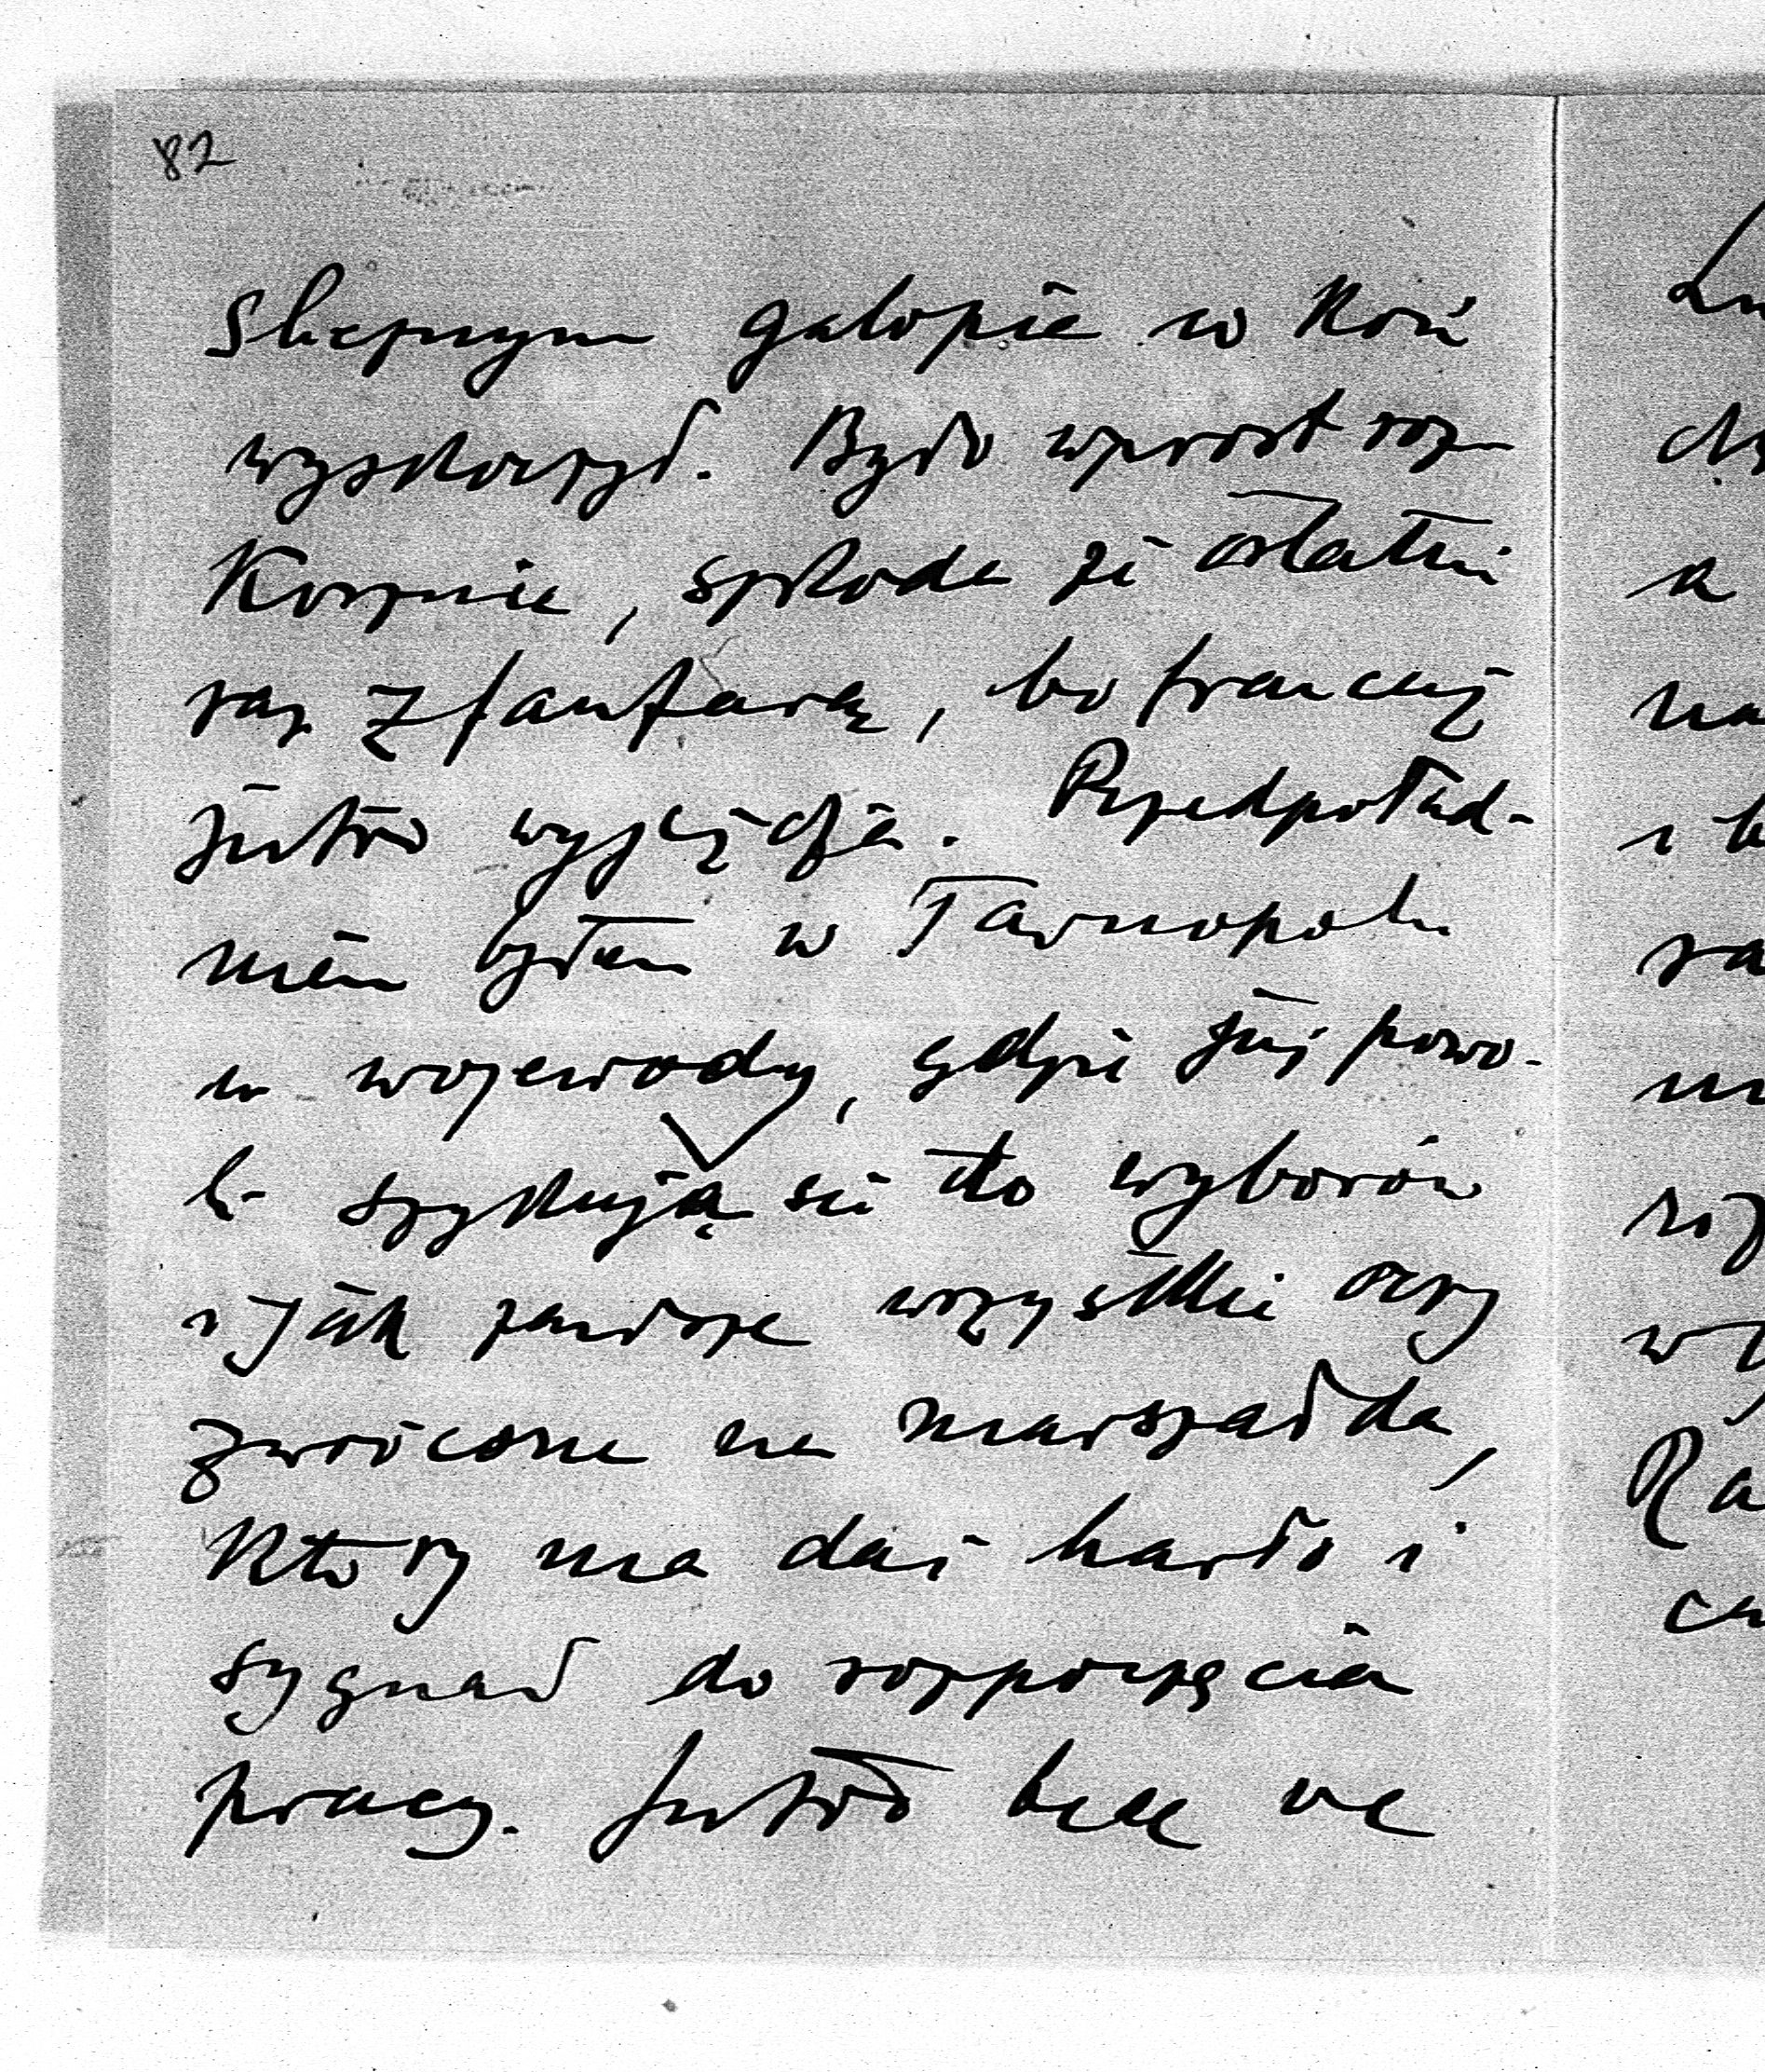 82
ślicznym galopie w koń
wyskoczył. Było wprost roz-
kosznie, szkoda że ostatni
raz z fanfarą, bo francuz
jutro wyjeżdża. Przedpołud-
niem byłem w Tarnopolu
u wojewody, gdzie już powo-
li szykują się do wyborów
i jak zawsze wszystkie oczy
zwrócone na marszałka,
który ma dać hasło i
sygnał do rozpoczęcia
pracy. Jutro będę we